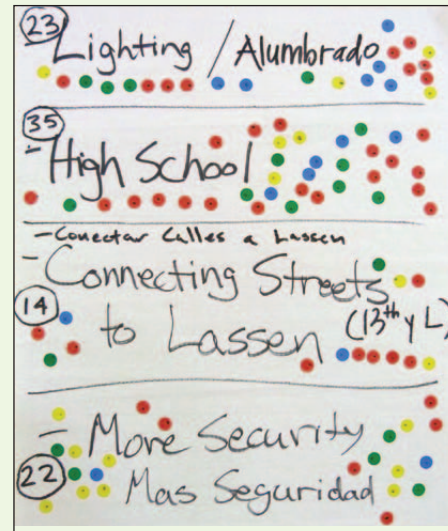 23
- Lighting / Alumbrado
35
- High School
- Conectar Calles a Lassen
- Connecting Streets
14
to Lassen (13th y L)
- More Security
22
Mas Seguridad